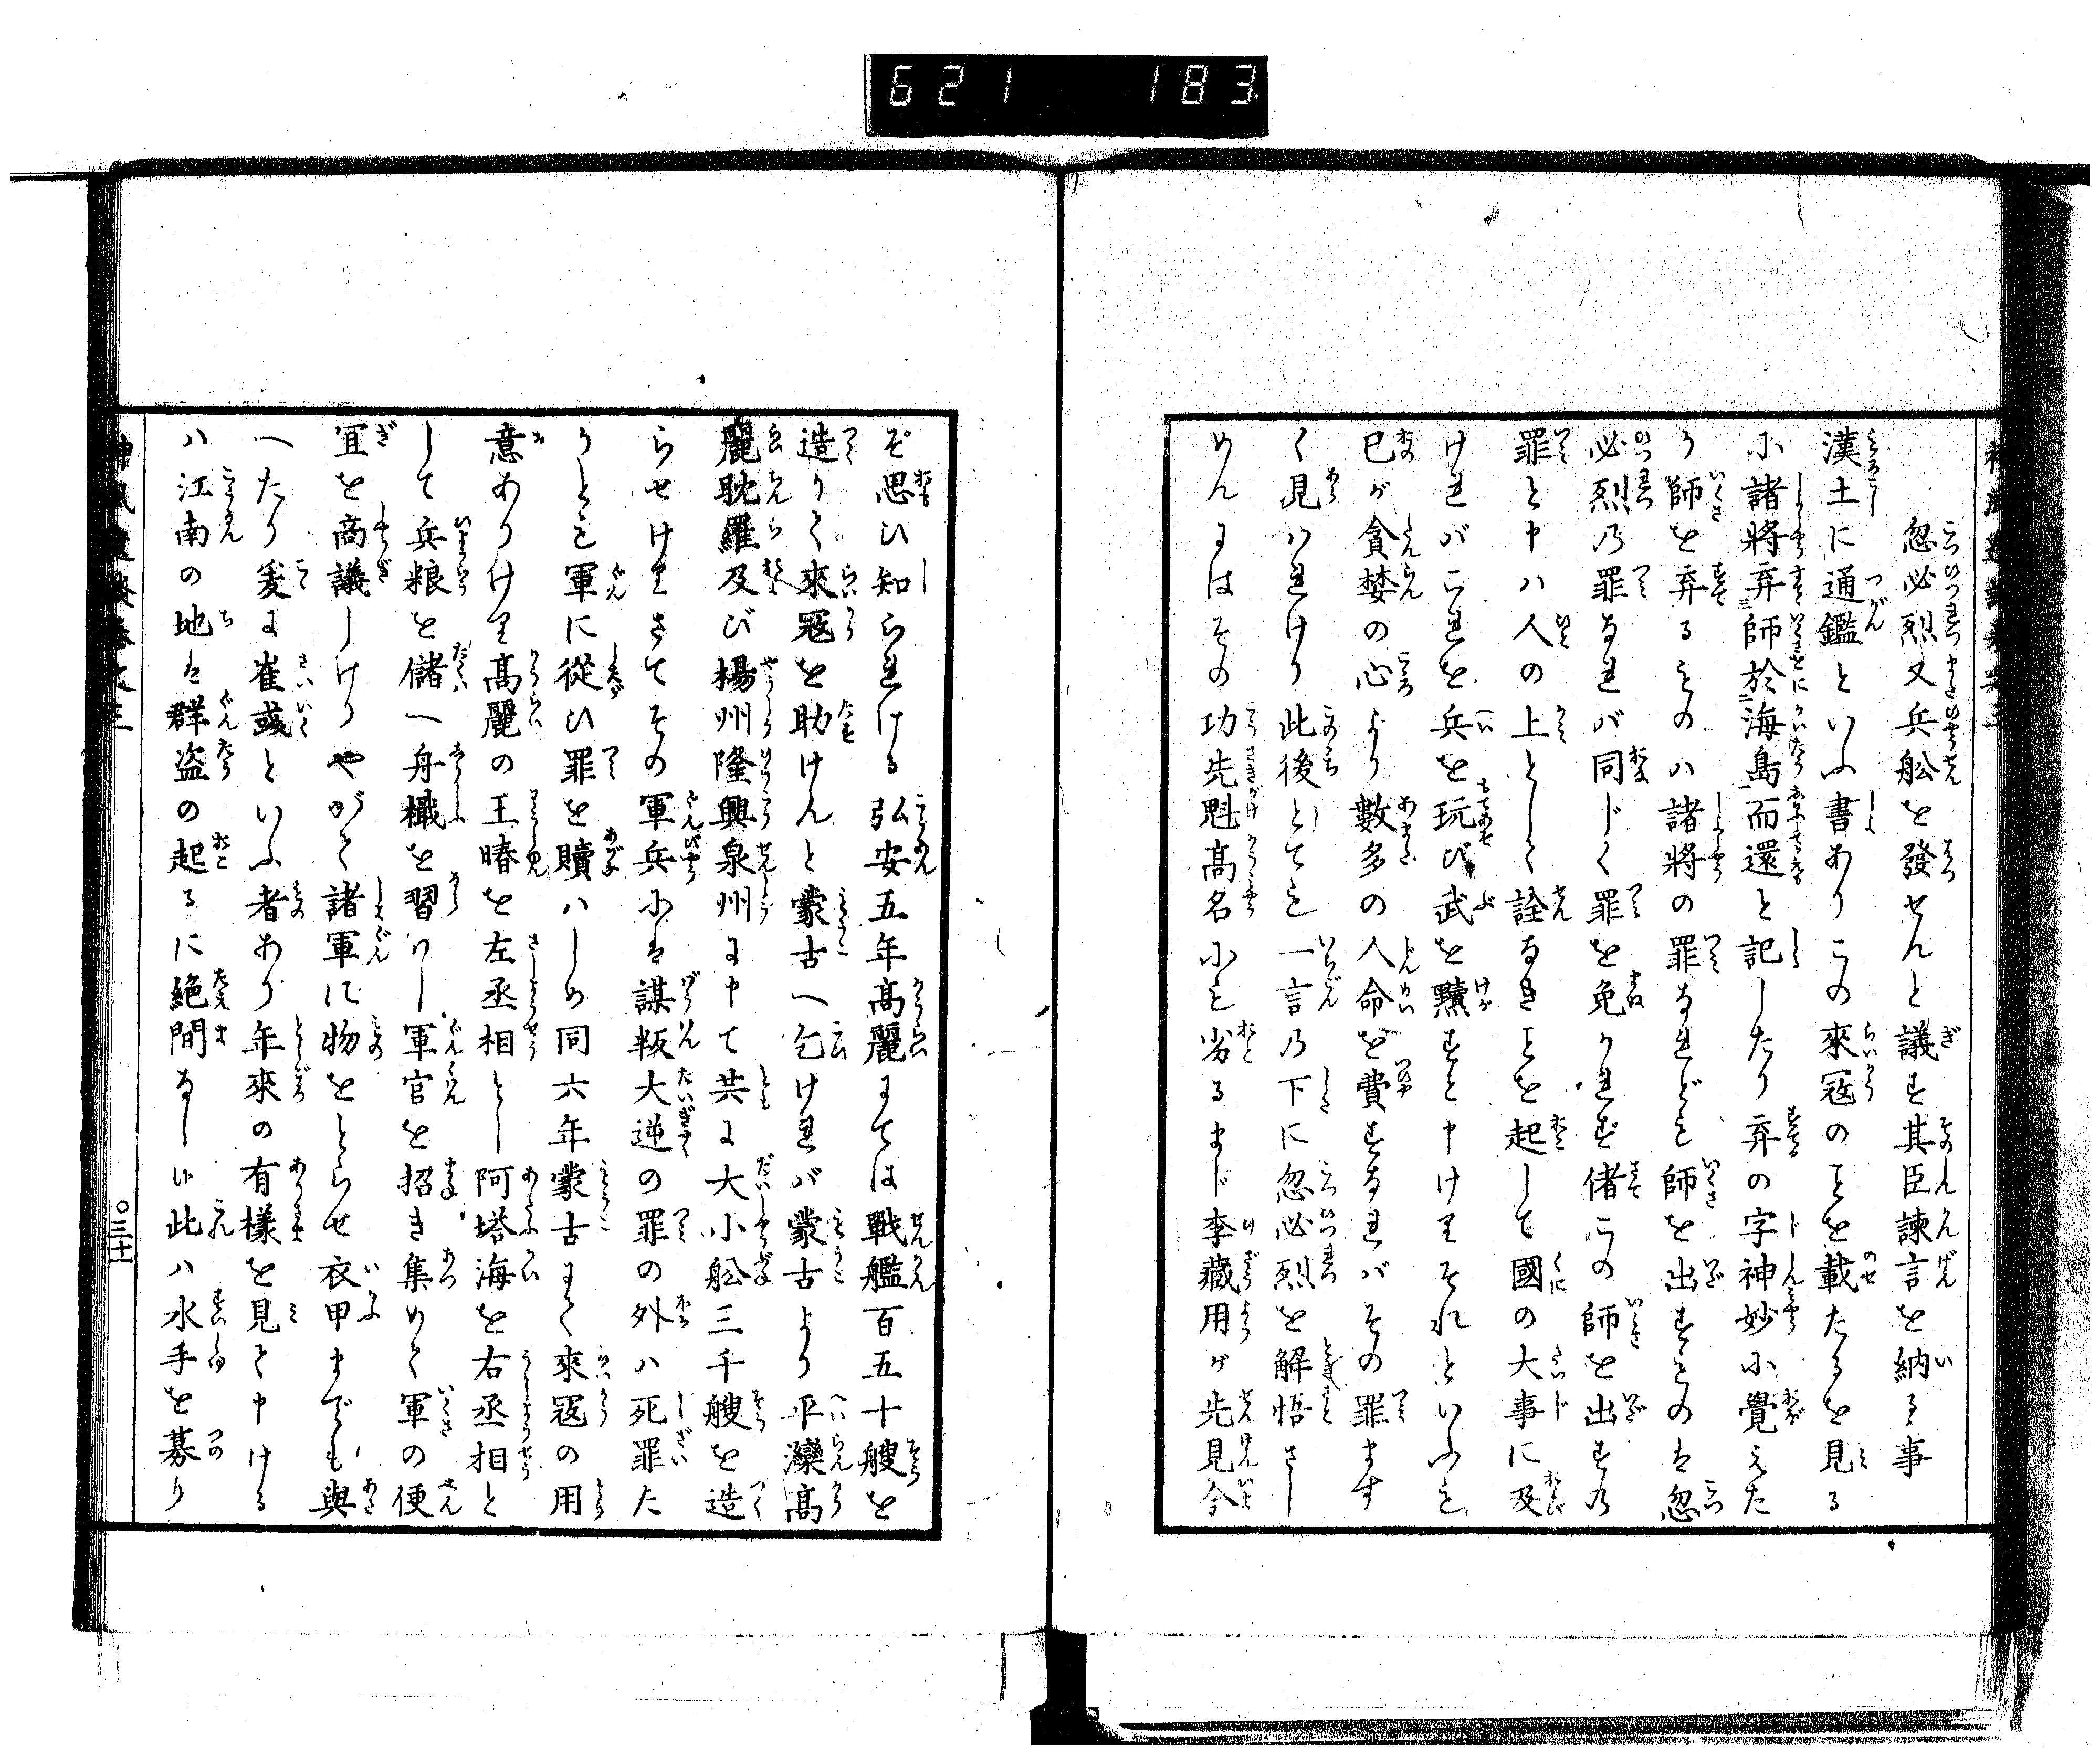 621 183
忽必烈又兵舩を發せんと議す其臣諫言を納るゝ事
漢土に通鑑といふ書ありこの來寇のことを載たるを見る
に諸將弃師於海島而還と記したり弃の字神妙に覺えた
り師を弃るものハ諸將の罪なれども師を出すものは忽
必烈乃罪なれバ同じく罪を免かれず偖この師を出す乃
罪と申ハ人の上として詮なきことを起して國の大事に及
けれバこれを兵を玩び武を黷すと申けりそれといふも
已が貪婪の心より數多の人命を費すなれバその罪ます
く見ハれけり此後とても一言乃下に忽必烈を解悟さし
めんにはその功先魁高名にも劣るまじ李藏用が先見今
ぞ思ひ知られける弘安五年高麗にては戰艦百五十艘を
造りて來寇を助けんと蒙古へ乞けれバ蒙古より平灤高
麗耽羅及び楊州隆興泉州に申て共に大小舩三千艘を造
らせけりさてその軍兵には謀叛大逆の罪の外ハ死罪た
りとも軍に從ひ罪を贖ハしめ同六年蒙古にて來寇の用
意ありけり高麗の王賰を左丞相とし阿塔海を右丞相と
して兵粮を儲へ舟檝を習ハし軍官を招き集めて軍の便
宜を商議しけりやがて諸軍に物をとらせ衣甲までも與
へたり爰に崔彧といふ者あり年來の有樣を見て申ける
ハ江南の地は群盗の起るに絶間なし此ハ水手を募り
○三十一